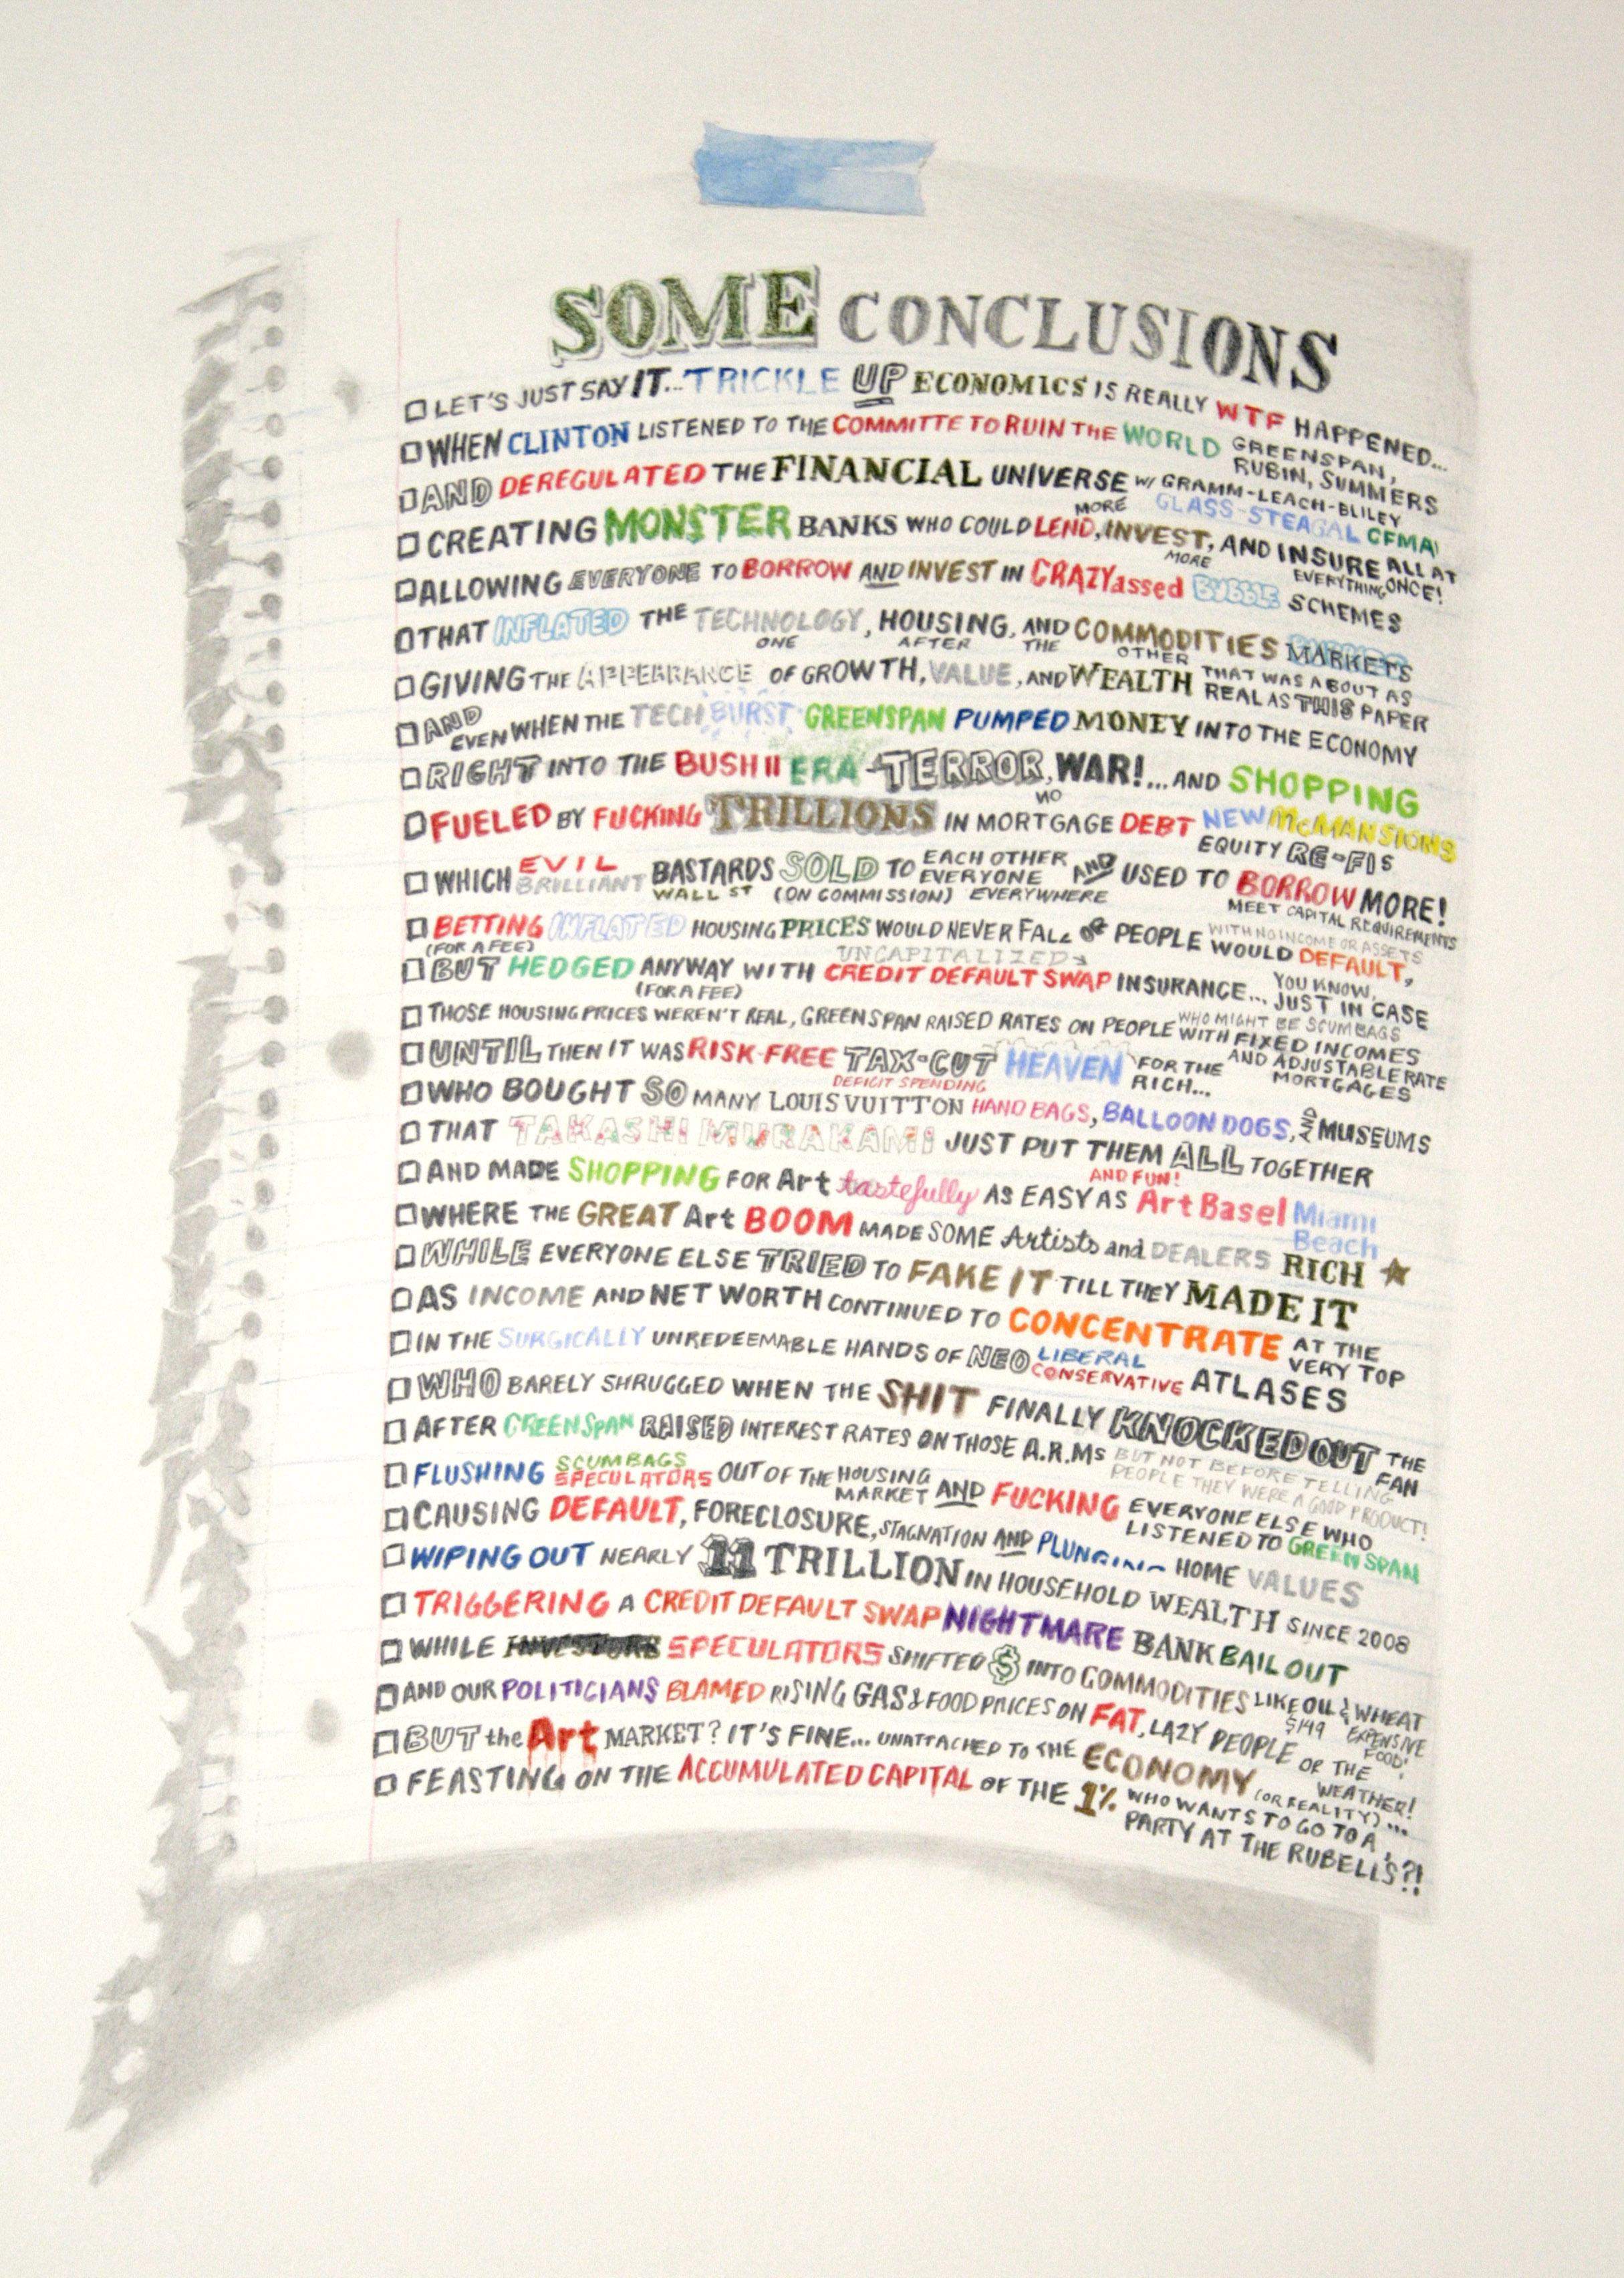 SOME CONCLUSIONS
☐ LET'S JUST SAY IT... TRICKLE UP ECONOMICS IS REALLY WTF HAPPENED...
☐ WHEN CLINTON LISTENED TO THE COMMITTE TO RUIN THE WORLD GREENSPAN, RUBIN, SUMMERS
☐ AND DEREGULATED THE FINANCIAL UNIVERSE W/ GRAMM-LEACH-BLILEY GLASS-STEAGAL CFMA
☐ CREATING MONSTER BANKS WHO COULD LEND, MORE INVEST, MORE AND INSURE EVERYTHING ALL AT ONCE!
☐ ALLOWING EVERYONE TO BORROW AND INVEST IN CRAZYassed BUBBLE SCHEMES
☐ THAT INFLATED THE TECHNOLOGY, HOUSING, AND COMMODITIES MARKETS
ONE AFTER THE OTHER
☐ GIVING THE APPEARANCE OF GROWTH, VALUE, AND WEALTH THAT WAS ABOUT AS REAL AS THIS PAPER
☐ AND EVEN WHEN THE TECH BURST GREENSPAN PUMPED MONEY INTO THE ECONOMY
☐ RIGHT INTO THE BUSH II ERA-TERROR, WAR!... AND SHOPPING
☐ FUELED BY FUCKING TRILLIONS IN MORTGAGE NO DEBT NEW McMANSIONS EQUITY RE-FIS
☐ WHICH EVIL BRILLIANT BASTARDS WALL ST SOLD (ON COMMISSION) TO EACH OTHER EVERYONE EVERYWHERE AND USED TO BORROW MORE! MEET CAPITAL REQUIREMENTS
☐ BETTING (FOR A FEE) INFLATED HOUSING PRICES WOULD NEVER FALL OR PEOPLE WITH NO INCOME OR ASSETS WOULD DEFAULT,
☐ BUT HEDGED ANYWAY (FOR A FEE) WITH UNCAPITALIZED CREDIT DEFAULT SWAP INSURANCE... YOU KNOW, JUST IN CASE
☐ THOSE HOUSING PRICES WEREN'T REAL, GREENSPAN RAISED RATES ON PEOPLE WHO MIGHT BE SCUMBAGS WITH FIXED INCOMES AND ADJUSTABLE RATE MORTGAGES
☐ UNTIL THEN IT WAS RISK-FREE TAX-CUT DEFICIT SPENDING HEAVEN FOR THE RICH...
☐ WHO BOUGHT SO MANY LOUIS VUITTON HAND BAGS, BALLOON DOGS, AND MUSEUMS
☐ THAT TAKASHI MURAKAMI JUST PUT THEM ALL TOGETHER
☐ AND MADE SHOPPING FOR Art tastefully AS EASY AS AND FUN! Art Basel Miami Beach
☐ WHERE THE GREAT Art BOOM MADE SOME Artists and DEALERS RICH ★
☐ WHILE EVERYONE ELSE TRIED TO FAKE IT TILL THEY MADE IT
☐ AS INCOME AND NET WORTH CONTINUED TO CONCENTRATE AT THE VERY TOP
☐ IN THE SURGICALLY UNREDEEMABLE HANDS OF NEO LIBERAL CONSERVATIVE ATLASES
☐ WHO BARELY SHRUGGED WHEN THE SHIT FINALLY KNOCKED OUT THE FAN
☐ AFTER GREENSPAN RAISED INTEREST RATES ON THOSE A.R.Ms BUT NOT BEFORE TELLING PEOPLE THEY WERE A GOOD PRODUCT!
☐ FLUSHING SCUMBAGS SPECULATORS OUT OF THE HOUSING MARKET AND FUCKING EVERYONE ELSE WHO LISTENED TO GREENSPAN
☐ CAUSING DEFAULT, FORECLOSURE, STAGNATION AND PLUNGING HOME VALUES
☐ WIPING OUT NEARLY 11 TRILLION IN HOUSEHOLD WEALTH SINCE 2008
☐ TRIGGERING A CREDIT DEFAULT SWAP NIGHTMARE BANK BAIL OUT
☐ WHILE INVESTORS SPECULATORS SHIFTED $ INTO COMMODITIES LIKE OIL $149 & WHEAT EXPENSIVE FOOD!
☐ AND OUR POLITICIANS BLAMED RISING GAS & FOOD PRICES ON FAT, LAZY PEOPLE OR THE WEATHER!
☐ BUT the Art MARKET? IT'S FINE... UNATTACHED TO THE ECONOMY (OR REALITY)...
☐ FEASTING ON THE ACCUMULATED CAPITAL OF THE 1% WHO WANTS TO GO TO A PARTY AT THE RUBELL'S?!